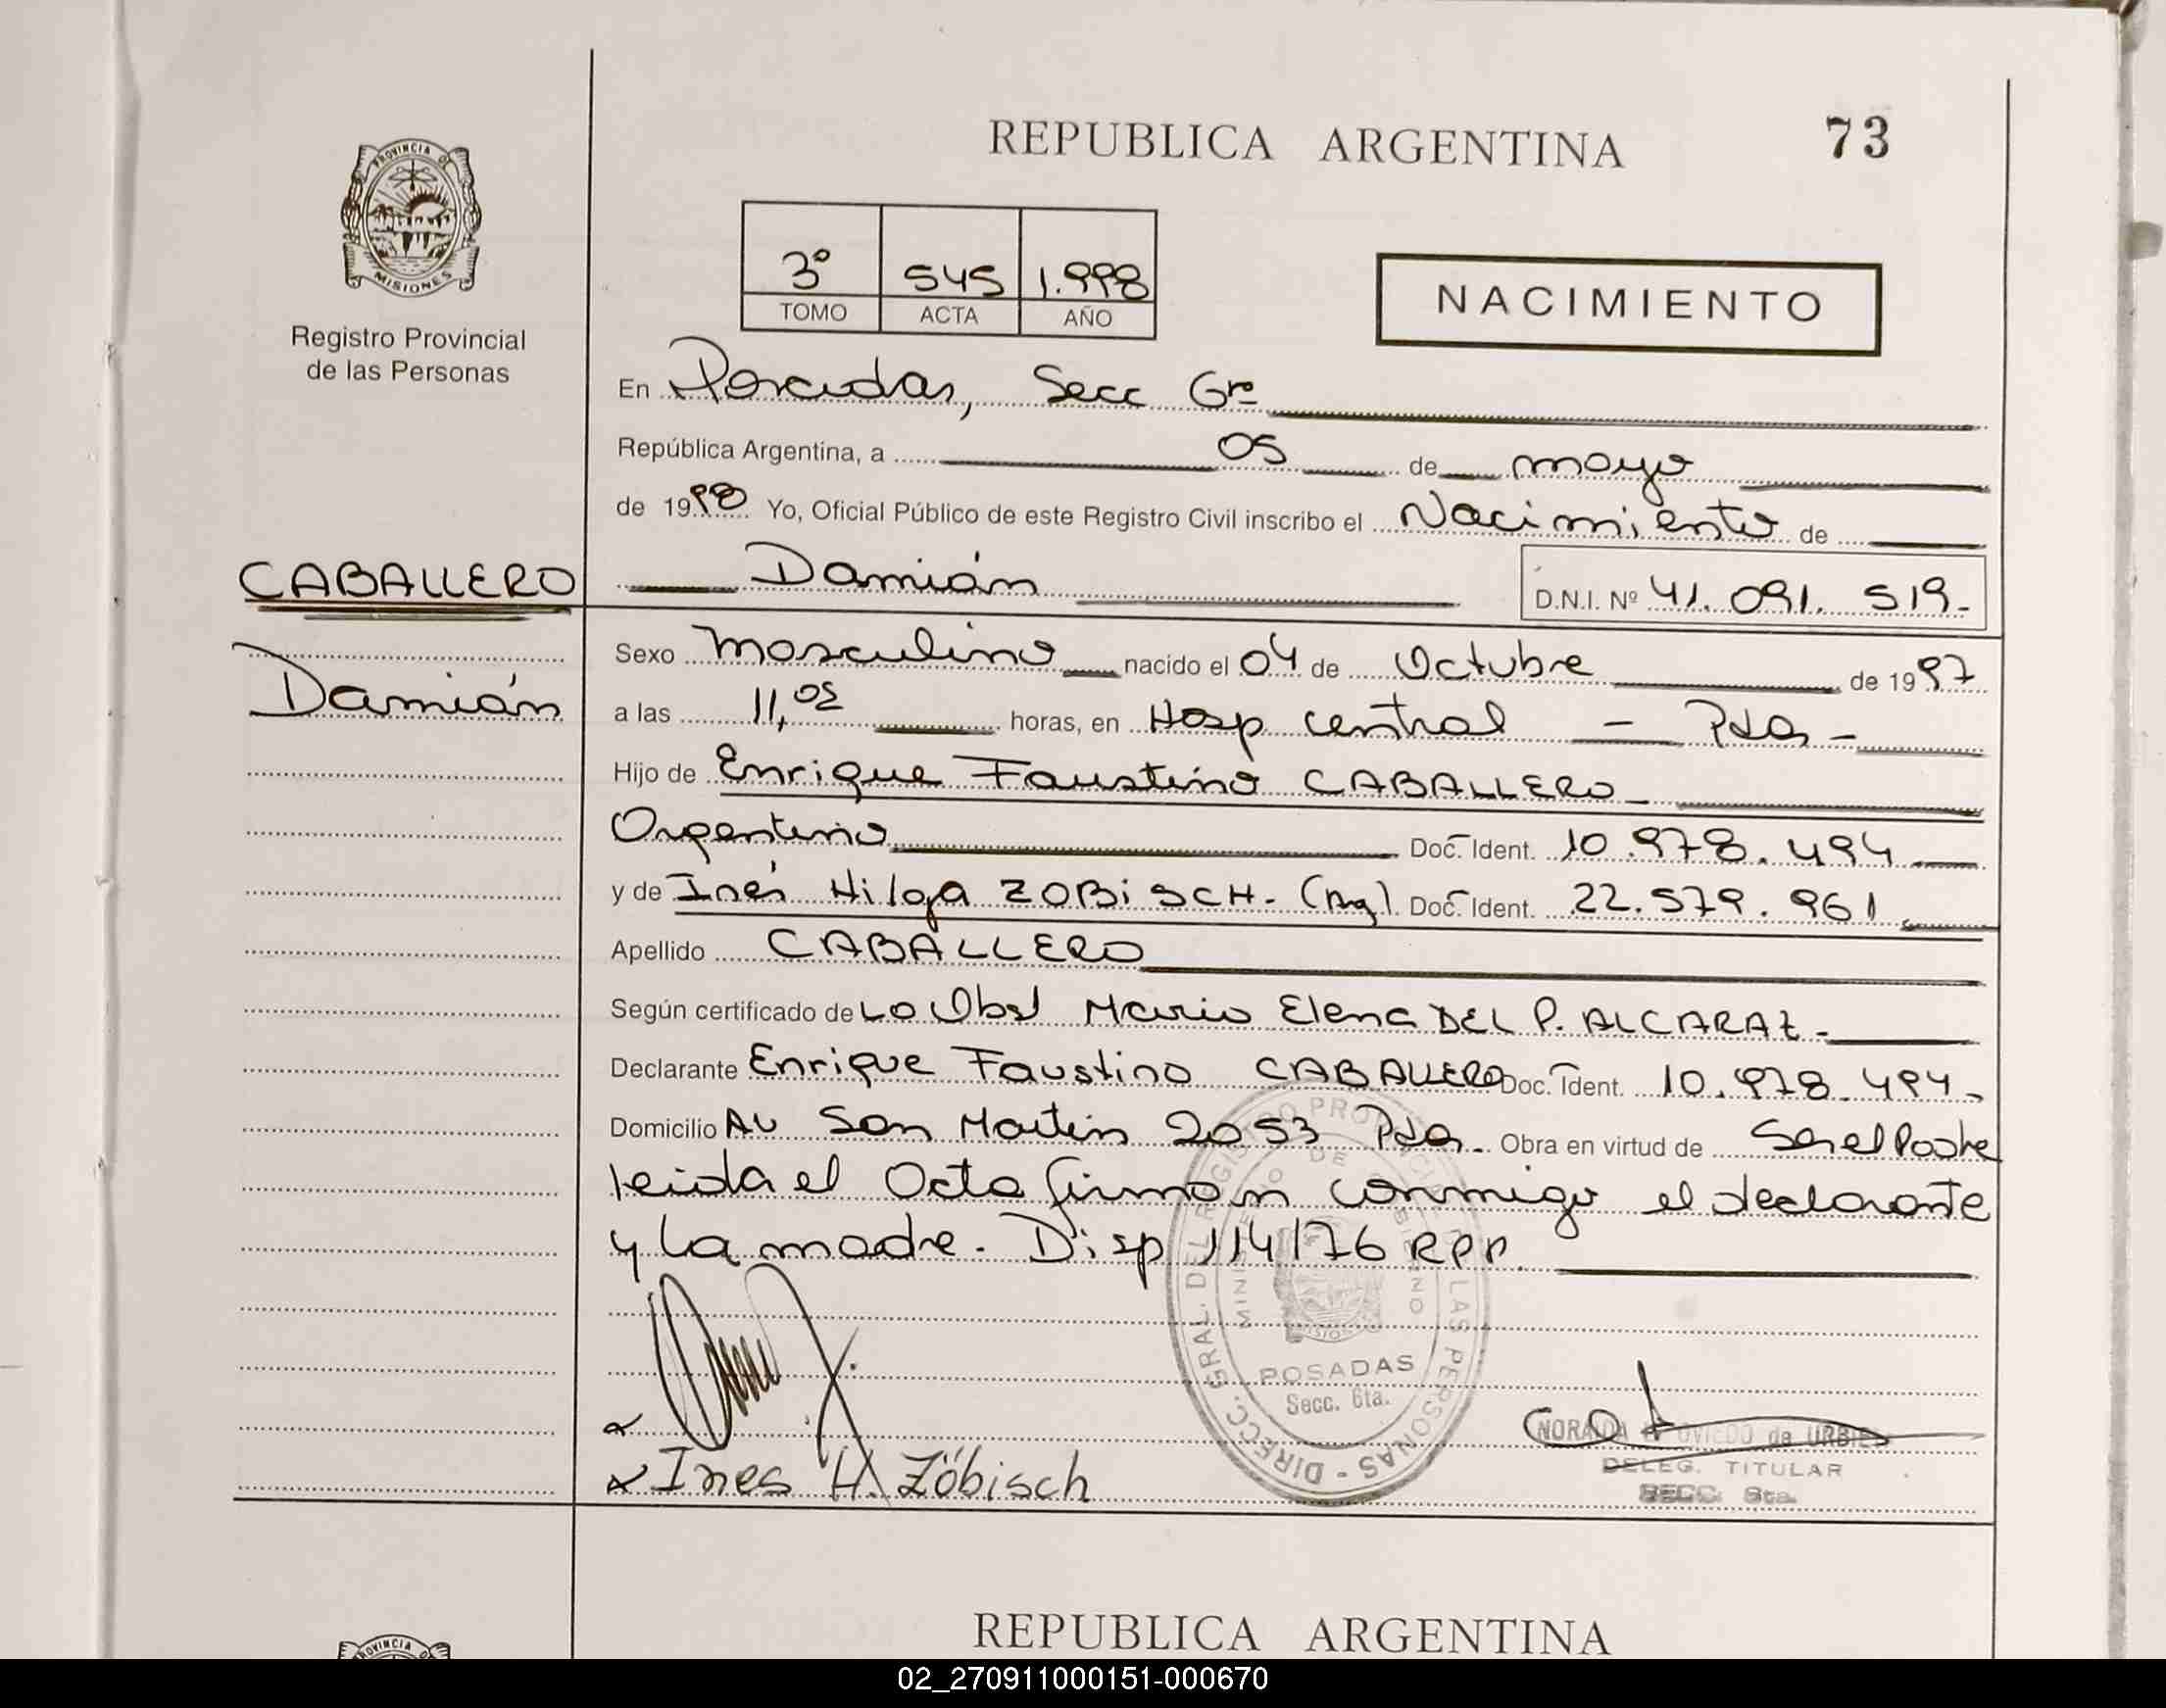 REPUBLICA ARGENTINA 73
PROVINCIA DE
MISIONES
Registro Provincial
de las Personas
3º 545 1.998
TOMO ACTA AÑO
NACIMIENTO
En Posadas, Secc 6ta
República Argentina, a 05 de mayo
de 1998 Yo, Oficial Público de este Registro Civil inscribo el Nacimiento de
CABALLERO Damián D.N.I. Nº 41.091.519-
Damián
Sexo masculino nacido el 04 de Octubre de 1997
a las 11,05 horas, en Hosp central = Pdas -
Hijo de Enrique Faustino CABALLERO
Argentino Doc. Ident. 10.978.494
y de Inés Hilga ZOBiSCH. (Arg) Doc. Ident. 22.579.961
Apellido CABALLERO
Según certificado de La Obst Maria Elena DEL P. ALCARAZ-
Declarante Enrique Faustino CABALLERO Doc. Ident. 10.978.494-
Domicilio Av San Martin 2053 Pdas. Obra en virtud de Ser el Padre
leida el Acta firman conmigo el declarante
y la madre. Disp 114/76 RPP.
DIRECC. GRAL. DEL REGISTRO PROVINCIAL DE LAS PERSONAS
MINISTERIO DE GOBIERNO
POSADAS
Secc. 6ta.
Ines H. Zöbisch
OVIEDO de URBIE
DELEG. TITULAR
SECC. 6ta.
REPUBLICA ARGENTINA
PROVINCIA
02_270911000151-000670